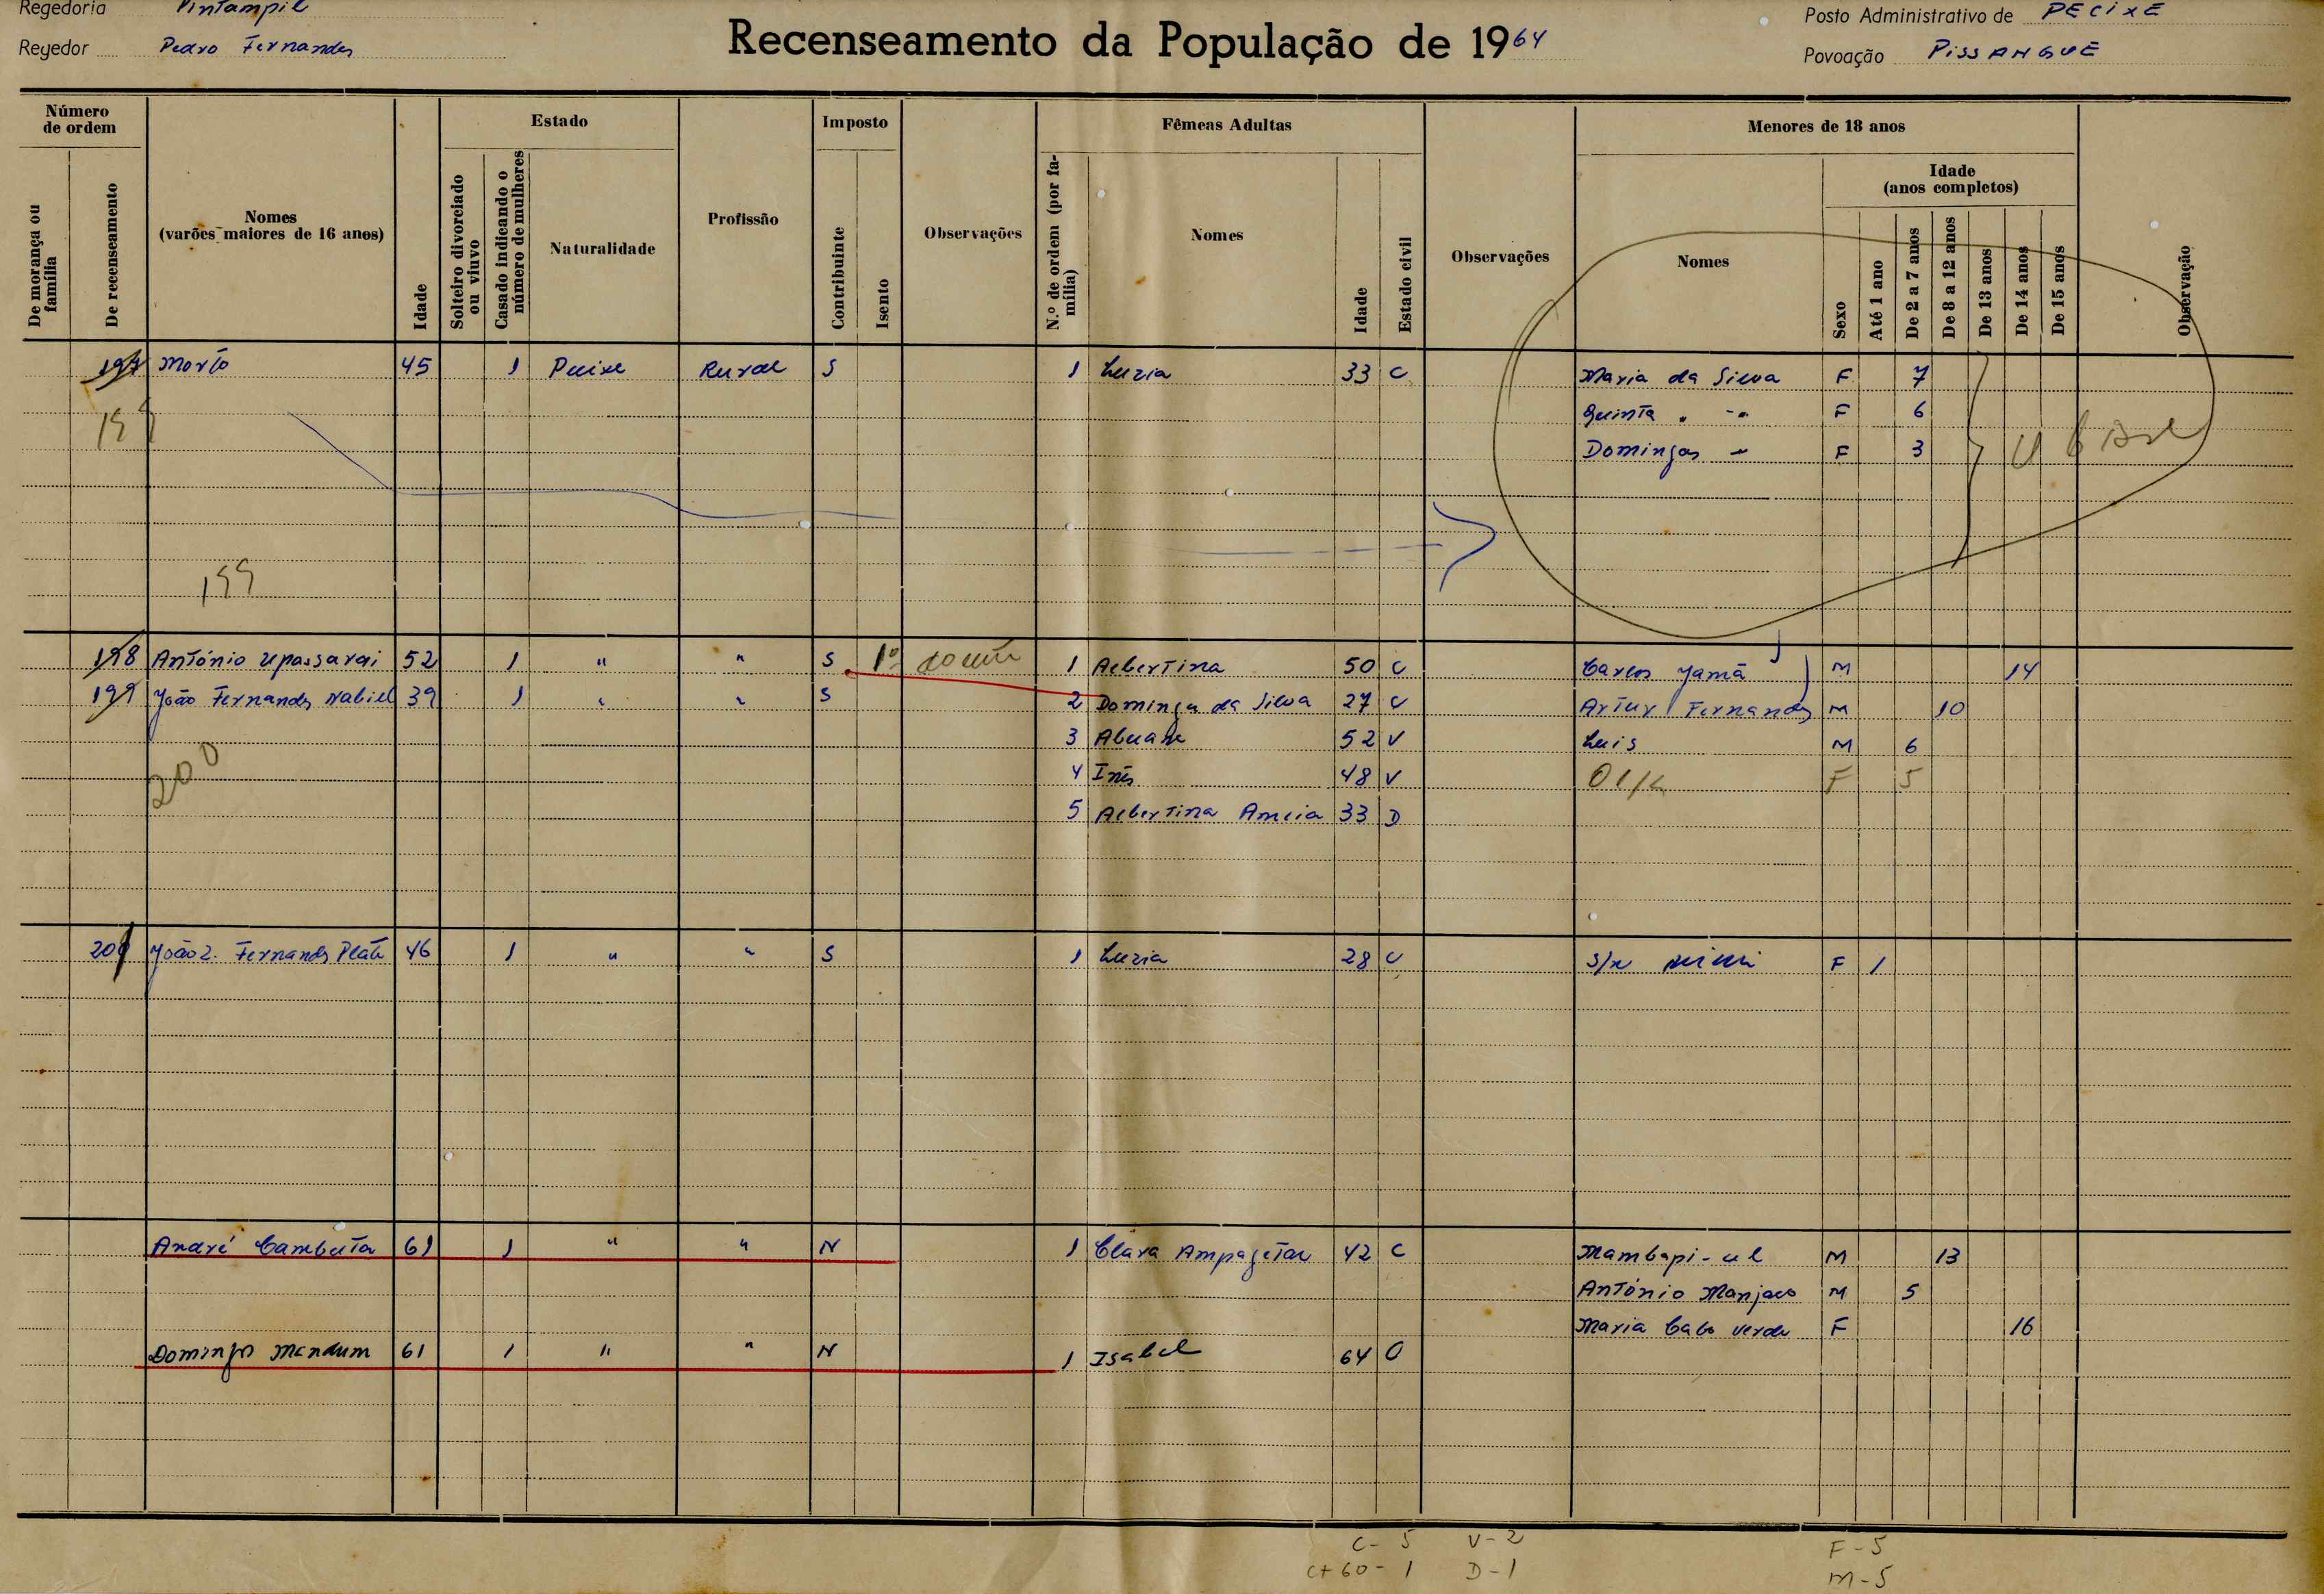 Regedoria Pintampil
Posto Administrativo de PECIXE
Regedor Pedro Fernandes
Recenseamento da População de 1964
Povoação PISSANGUE
Número de ordem
Estado
Imposto
Fêmeas Adultas
Menores de 18 anos
De morança ou família
De recenseamento
Nomes (varões maiores de 16 anos)
Idade
Solteiro divorciado ou viuvo
Casado indicando o número de mulheres
Naturalidade
Profissão
Contribuinte
Isento
Observações
N.º de ordem (por família)
Nomes
Idade
Estado civil
Observações
Nomes
Sexo
Idade (anos completos)
Até 1 ano
De 2 a 7 anos
De 8 a 12 anos
De 13 anos
De 14 anos
De 15 anos
Observação
197 45 1 Pecixe Rural S 1 Luzia 33 C Maria da Silva F 7
199 Quinta " - " F 6
Domingas " F 3
199
198 António Upassarai 52 1 " " S 1º 1 Albertina 50 C Carlos Jamã M 14
199 João Fernandes Nabiel 39 1 " " S 2 Dominga da Silva 27 C Artur Fernandes M 10
3 52 V Luis M 6
200 4 Inês 48 V F 5
5 Albertina Ameia 33 D
João Z. Fernandes 46 1 " " S 1 Luzia 28 C S/n F 1
André Cambuta 61 1 " " N 1 Clara 42 C Mambapi-ul M 13
António Manjaco M 5
Maria Cabo Verde F 16
Domingos Mendum 61 1 " " N 1 Isabel 64 C
C - 5 V - 2 F - 5
C+60 - 1 D - 1 M - 5